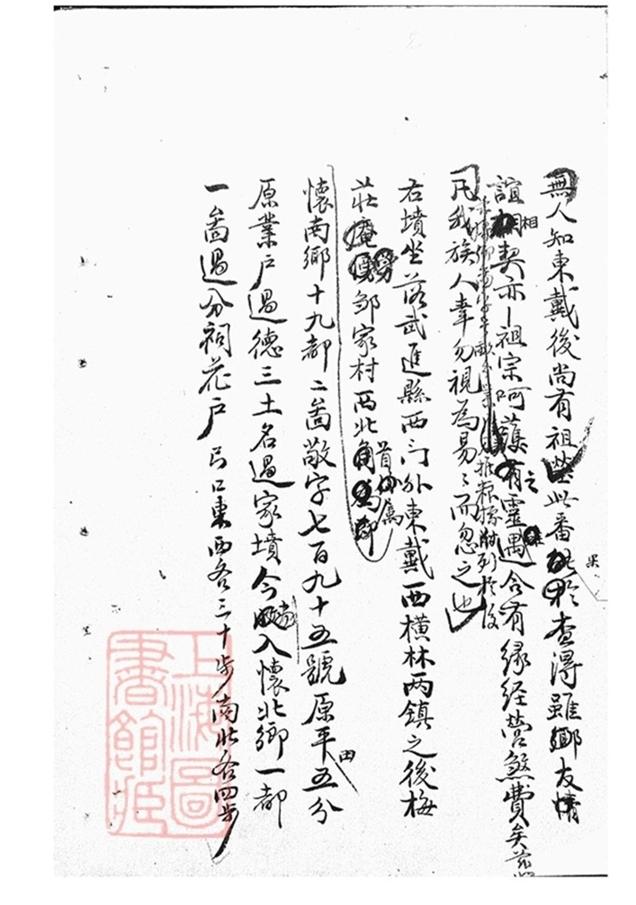 無人知東戴後尚有祖塋此番查得雖鄉友情
誼相契亦祖宗阿護之有靈遇合有緣经营煞費矣
凡我族人幸勿視為易易而忽之也
右墳坐落武進縣西门外東戴西橫林两鎮之後梅
莊庵旁邹家村西北首屬
懷南鄉十九都二啚敬字七百九十五號原平田五分
原業戶過德三土名過家墳今入懷北鄉一都
一啚過分祠花戶弓口東西各三十步南北各四步
上海圖書館藏